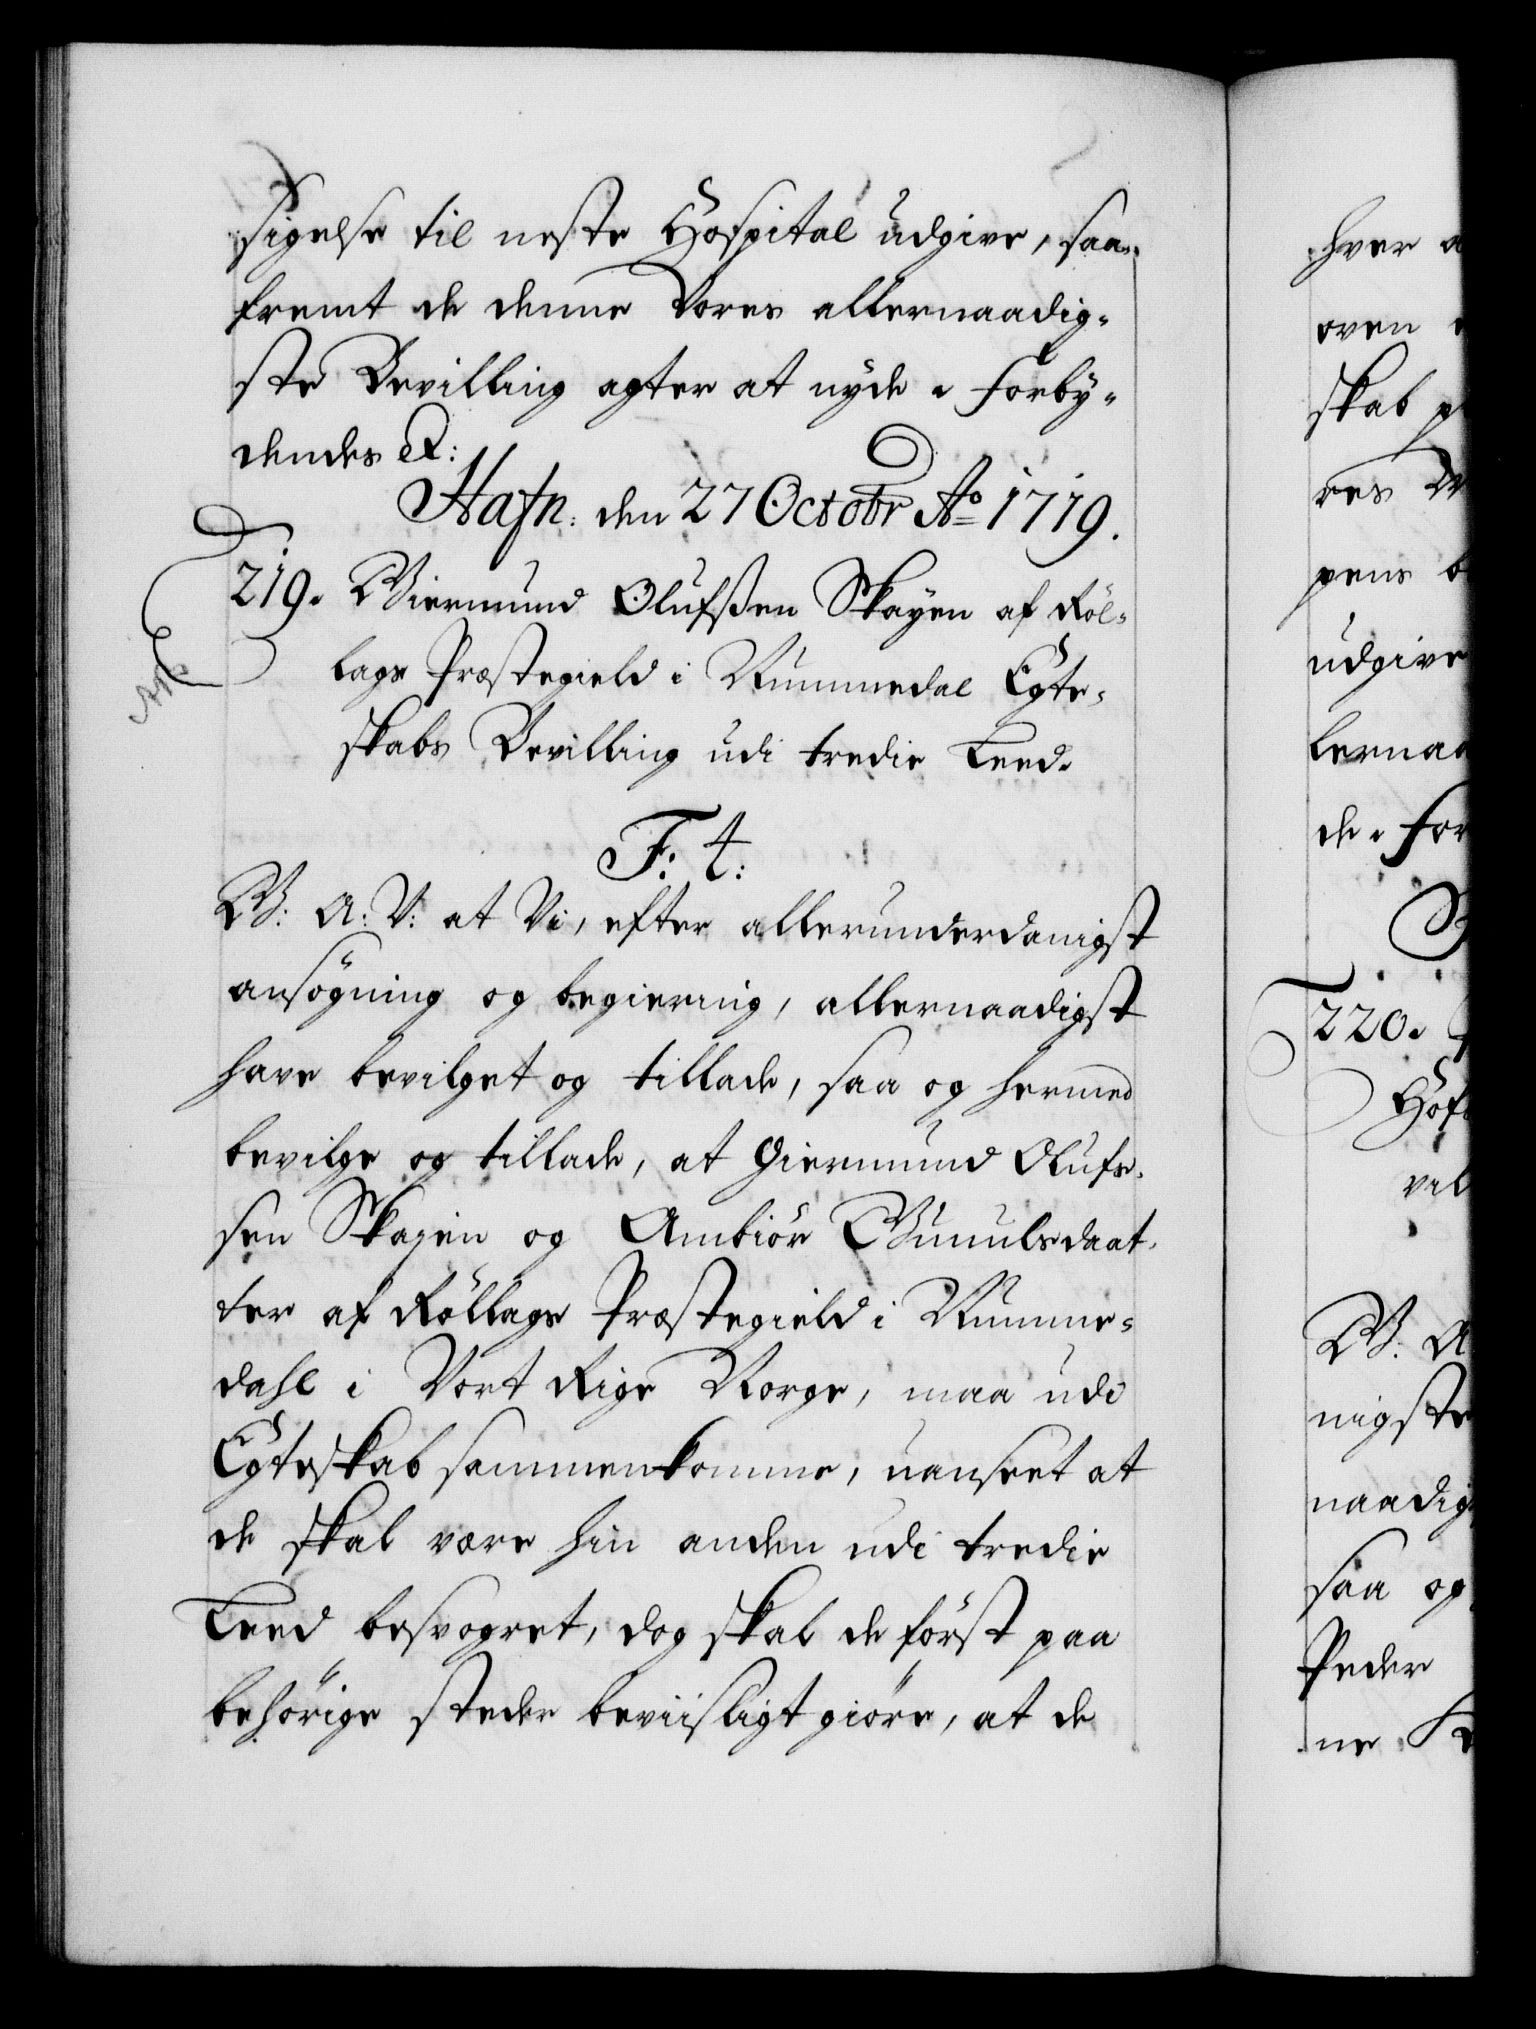 sigelse til neste Hospital udgive, saa-
fremt de denne Vores allernaadig-
ste Bevilling agter at nyde. Forby-
dendes &:
Hafn: den 27 Octobr Ao 1719.
219. Giermund Olufßen Skayen af Röl-
lags Præstegield i Nummedal Egte-
skabs Bevilling udi tredie Leed.
F. 4:
G: A: V: at Vi, efter allerunderdanigst
ansøgning og begiering, allernaadigst
have bevilget og tillade, saa og hermed
bevilge og tillade, at Giermund Olufs-
sen Skajen og Ambiör Gunulsdaat-
ter af Röllags Præstegield i Numme-
dahl i Vort Rige Norge, maa udi
Egteskab sammenkomme, uanseet at
de skal være hin anden udi tredie
Leed besvogret, dog skal de först paa
behörige steder beviisligt giöre, at de
hver a
oven
skab p
res
pens b
udgive
lernaa
de. For
220.
Hof
vil
G: A
nigste
naadig
saa og
Peder
ne